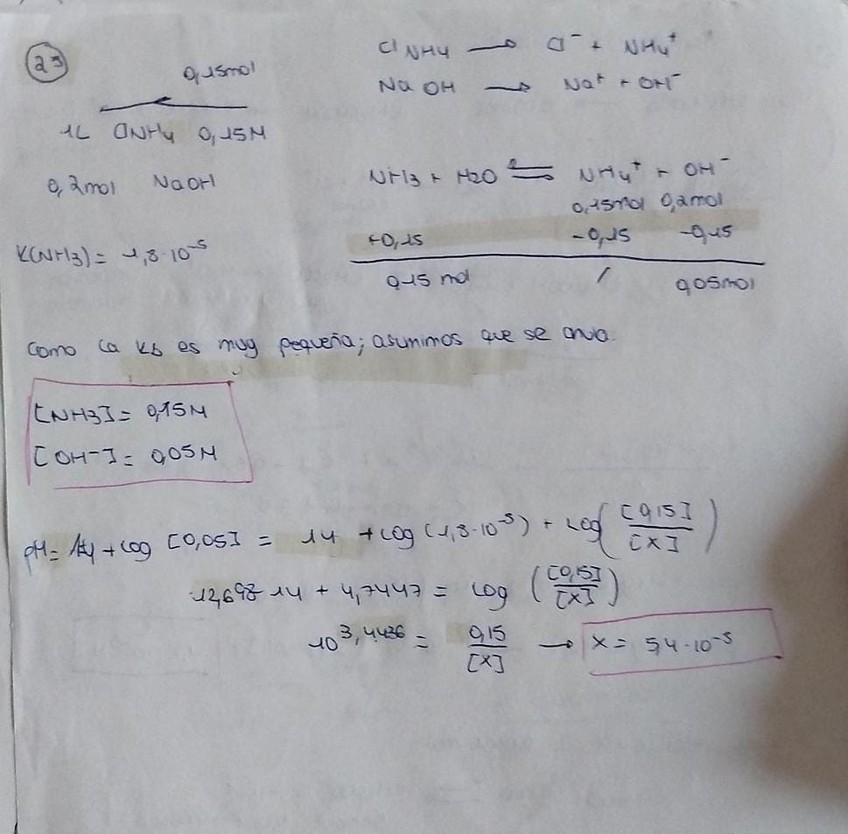 23
0,15mol
1L ClNH4 0,15M
0,2mol NaOH
K(NH3) = 1,8·10^-5
ClNH4 → Cl^- + NH4^+
NaOH → Na^+ + OH^-
NH3 + H2O ⇌ NH4^+ + OH^-
0,15mol 0,2mol
+0,15 -0,15 -0,15
0,15 mol / 0,05mol
Como la Kb es muy pequeña; asumimos que se
[NH3] = 0,15M
[OH^-] = 0,05M
pH = 14 + log [0,05] = 14 + log (1,8·10^-5) + log ([0,15]/[x])
12,698 - 14 + 4,7447 = log ([0,15]/[x])
10^3,4436 = 0,15/[x] → x = 5,4·10^-5